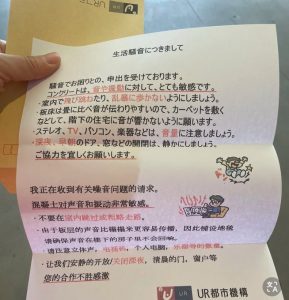 URコ
生活騒音につきまして
騒音でお困りとの、申出を受けております。
コンクリートは、音や震動に対して、とても敏感です。
・室内で飛び跳ねたり、乱暴に歩かないようにしましょう。
・板床は畳に比べ音が伝わりやすいので、カーペットを敷く
などして、階下の住宅に音が響かないように願います。
・ステレオ、TV、パソコン、楽器などは、音量に注意しましょう。
・深夜、早朝のドア、窓などの開閉は、静かにしましょう。
ご協力を宜しくお願いします。
我正在收到有关噪音问题的请求。
混凝土对声音和振动非常敏感。
・不要在室内跳过或粗略走路。
・由于板层的声音比榻榻米更容易传播，因此铺设地毯
请确保声音在楼下的房子里不会回响。
・请注意立体声，电视机，个人电脑，乐器等的数量。
・让我们安静的开放/关闭深夜，清晨的门，窗户等
您的合作不胜感激
UR
UR都市機構